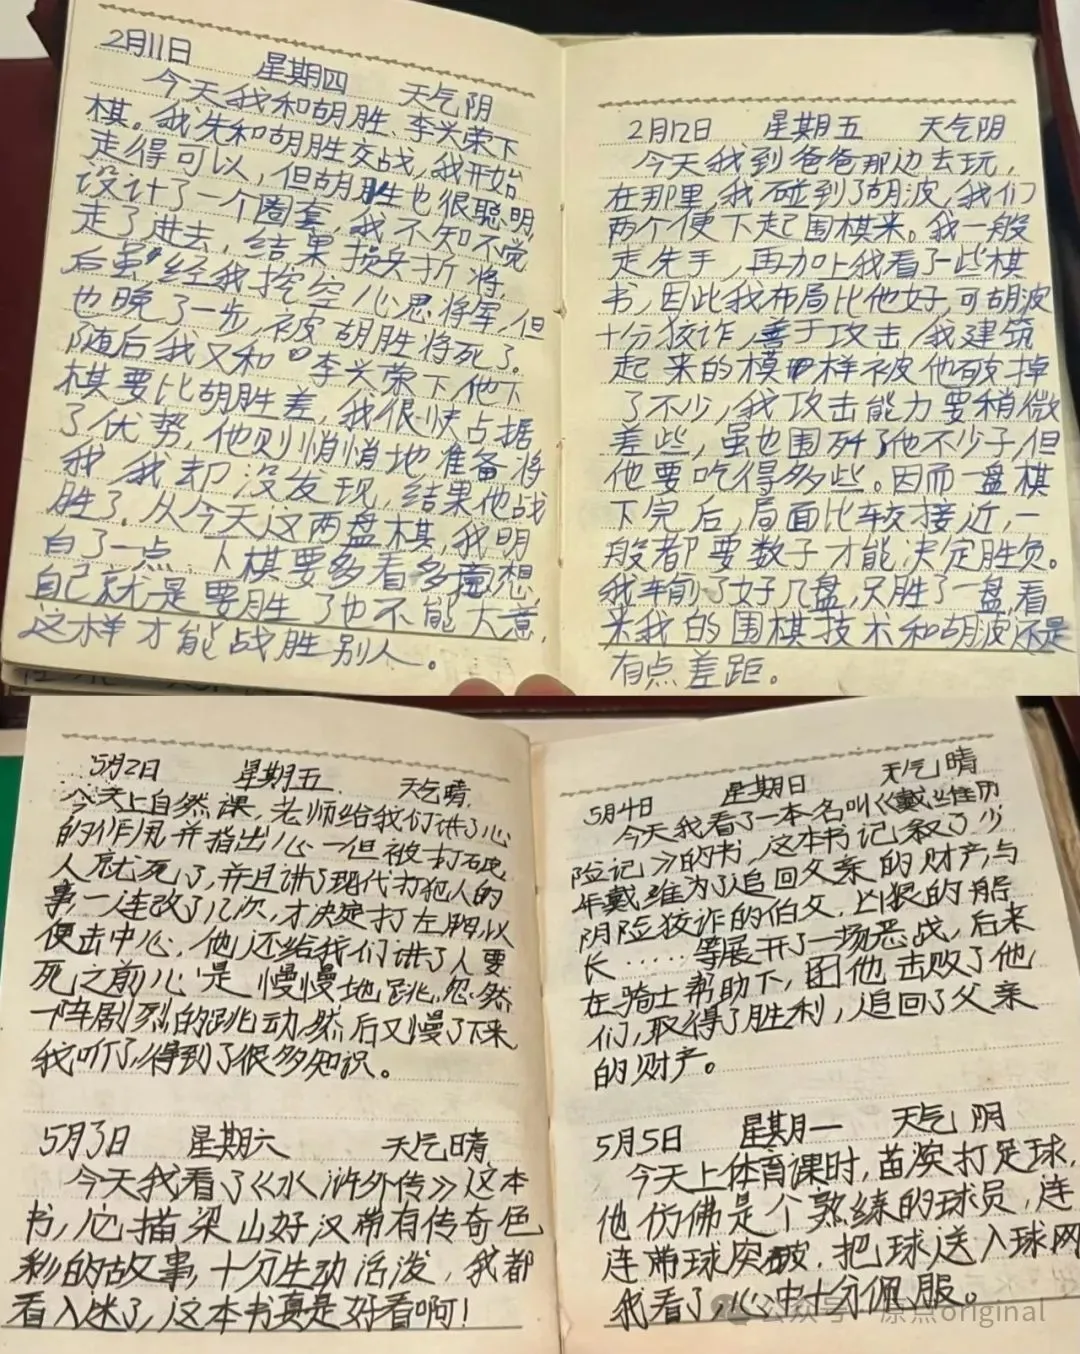 2月11日 星期四 天气阴
今天我和胡胜、李兴荣下
棋。我先和胡胜交战,我开始
走得可以,但胡胜也很聪明,
设计了一个圈套,我不知不觉
走了进去,结果损失折将,
后虽经我挖空心思将军,但
也晚了一步,被胡胜将死了。
随后我又和李兴荣下,他下
棋要比胡胜差,我很快占据
了优势,他则悄悄地准备将
我,我却没发现,结果他战
胜了。从今天这两盘棋,我明
白了一点:下棋要多看多想,
自己就是要胜了也不能大意,
这样才能战胜别人。
2月12日 星期五 天气阴
今天我到爸爸那边去玩,
在那里,我碰到了胡波,我们
两个便下起围棋来。我一般
走先手,再加上我看了一些棋
书,因此我布局比他好,可胡波
十分狡诈,善于攻击,我建筑
起来的模样被他破掉
了不少,我攻击能力要稍微
差些,虽也围歼了他不少子,但
他要吃得多些。因而一盘棋
下完后,局面比较接近,一
般都要数子才能决定胜负。
我车前了好几盘,只胜了一盘,看
来我的围棋技术和胡波还是
有点差距。
5月2日 星期五 天气晴
今天上自然课,老师给我们讲了心
的作用,并指出心一但被打破,
人就死了,并且讲了现代打犯人的
事,一连改了几次,才决定打左胸,以
便击中心,他还给我们讲了人要
死之前心是慢慢地跳,忽然
一阵剧烈的跳动,然后又慢了下来
我听了,得到了很多知识。
5月3日 星期六 天气晴
今天我看了《水浒外传》这本
书,它描梁山好汉带有传奇色
彩的故事,十分生动活泼,我都
看入迷了,这本书真是好看啊!
5月4日 星期日 天气晴
今天我看了一本名叫《戴维历
险记》的书,这本书记叙了少
年戴维为了追回父亲的财产,与
阴险狡诈的伯父,凶狠的船
长……等展开了一场恶战,后来
在骑士帮助下,团他击败了他
们,取得了胜利,追回了父亲
的财产。
5月5日 星期一 天气阴
今天上体育课时,苗滨打足球,
他仿佛是个熟练的球员,连
连带球突破,把球送入球网
我看了,心中十分佩服。
公众号·原点original